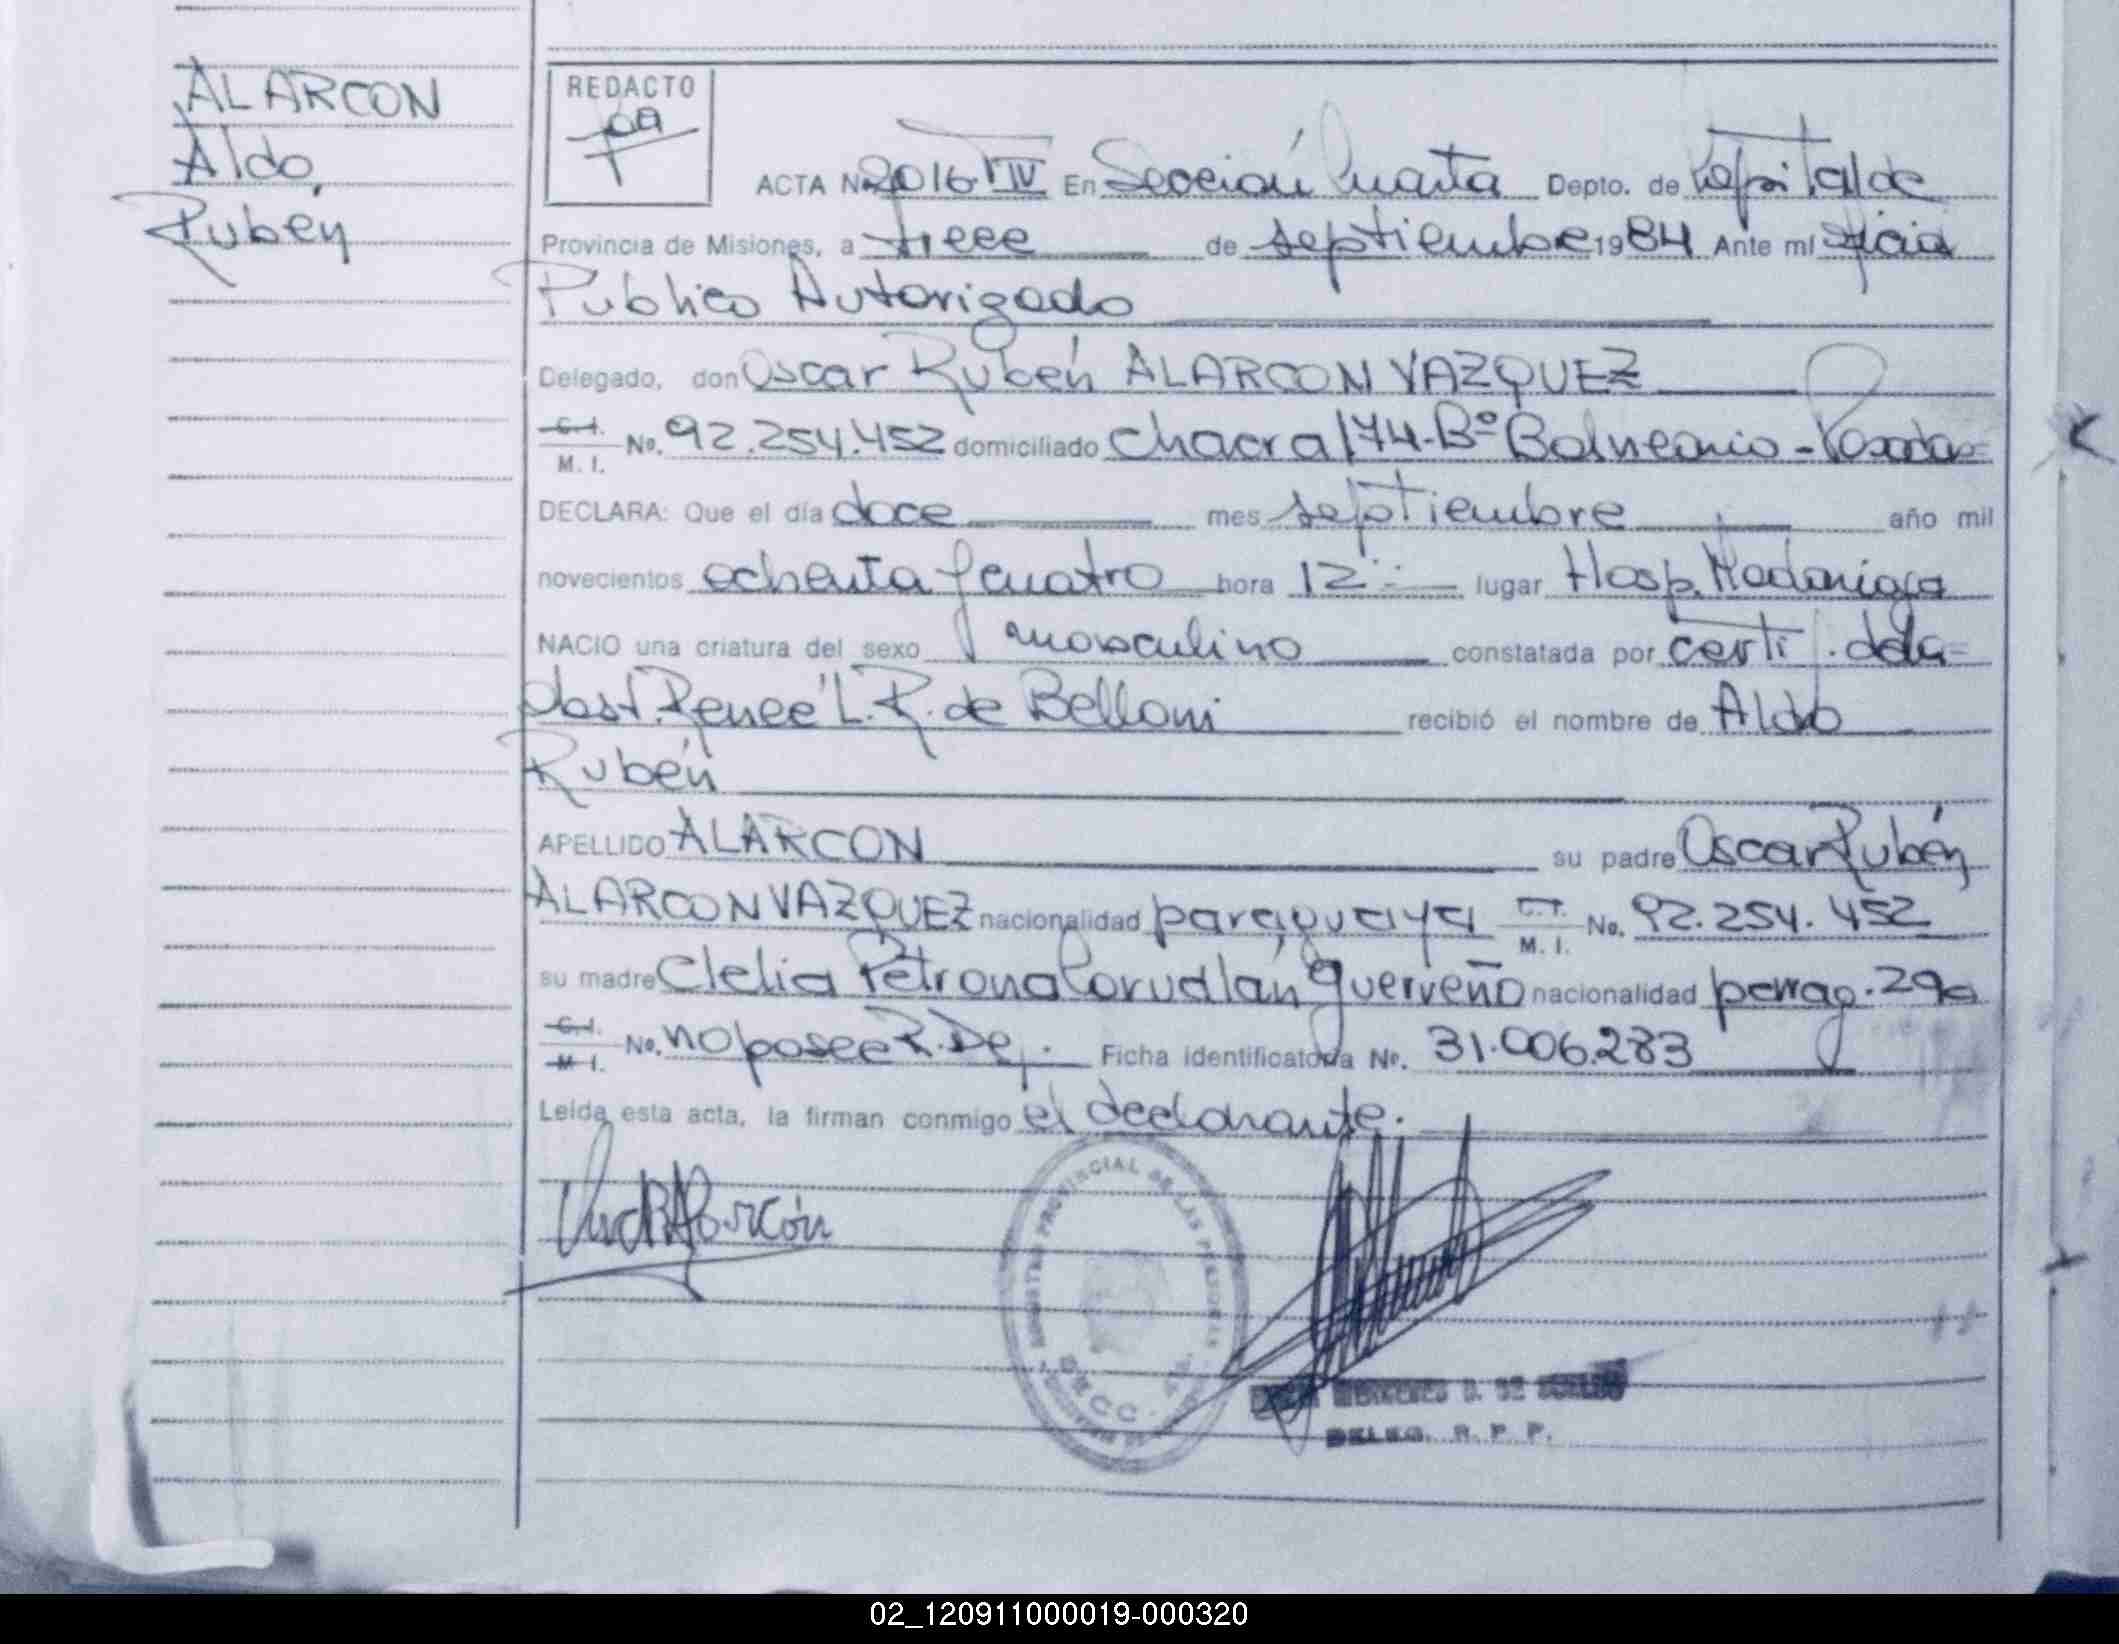 ALARCON
Aldo,
Rubén
REDACTO
ACTA No. 2016 T IV En Sección Cuarta Depto. de Capital de
Provincia de Misiones, a trece de septiembre 1984 Ante mí Oficial
Publico Autorizado
Delegado, don Oscar Rubén ALARCON VAZQUEZ
C.I. M. I. No. 92.254.452 domiciliado Chacra 174-Bº Balneario - Posadas=
DECLARA: Que el día doce mes septiembre año mil
novecientos ochenta y cuatro hora 12 lugar Hosp. Madariaga
NACIO una criatura del sexo masculino constatada por certif. de la=
Obst. Reneé L. R. de Belloni recibió el nombre de Aldo
Rubén
APELLIDO ALARCON su padre Oscar Rubén
ALARCON VAZQUEZ nacionalidad paraguaya C.I. M. I. No. 92.254.452
su madre Clelia Petrona nacionalidad parag. 29a
C.I. M. I. No. no posee Ficha identificatoria No. 31.006.283
Leída esta acta, la firman conmigo el declarante.
Alarcón
REGISTRO PROVINCIAL DE LAS PERSONAS
DELEG. R. P. P.
02_120911000019-000320